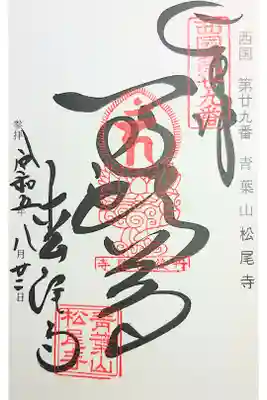 西国 第廿九番 青葉山 松尾寺
西国第廿九番
馬頭尊
松尾寺
参拝 令和五年八月廿二日
青葉山
松尾寺